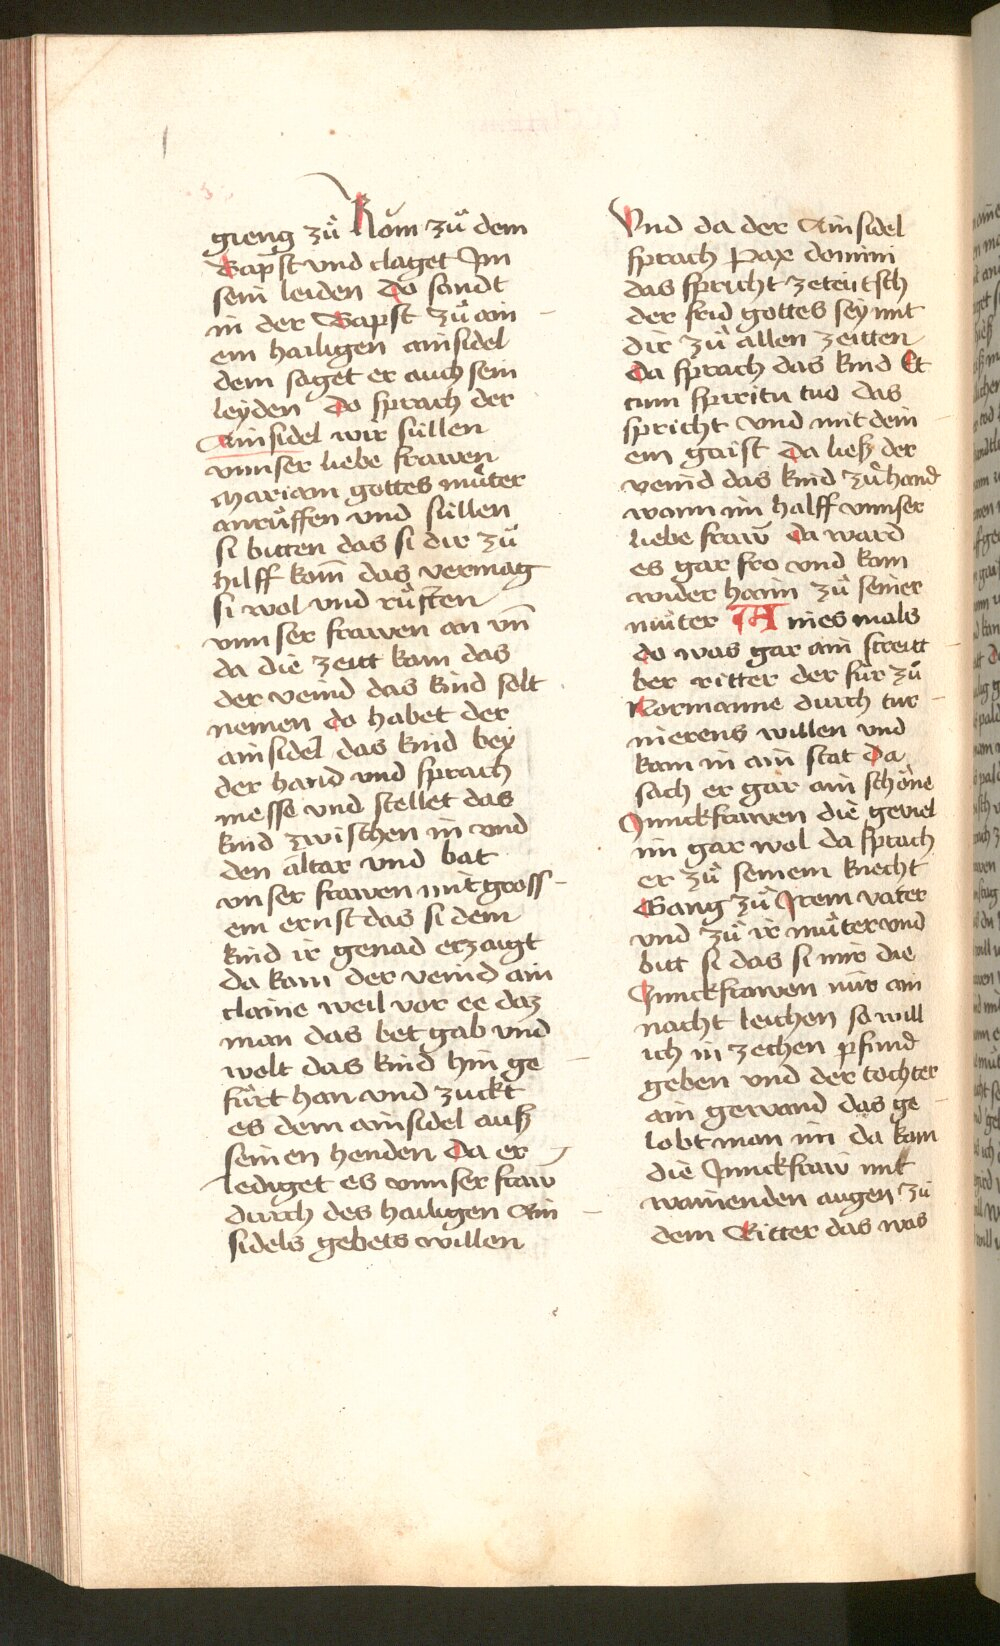 gieng zů Rom zů dem
Bapst vnd claget Im
sein leiden do sandt
in der Bapst zů ain
em hailigen ainsidel
dem saget er auch sein
leyden do sprach der
Ainsidel wir süllen
vnnser liebe frawen
mariam gottes můter
anrůffen vnd süllen
si bitten das si dir zů
hilff kom̄ das vermag
si wol vnd růfften
vnnser frawen an vn̄
da die zeitt kam das
der veind das kind solt
nemen do habet der
ainsidel das kind bey
der hand vnd sprach
messe vnd stellet das
kind zwischen in vnd
den altar vnd bat
vnser frawen mit gross
em ernst das si dem
kind ir genad erzaigt
da kam der veind ain
claine weil vor ee daz
man das bet gab vnd
wolt das kind hin ge
fürt han vnd zuckt
es dem ainsidel auß
seinen henden da er
lediget es vnnser fraw
durch des hailigen Ain
sidels gebets willen
Vnd da der Ainsidel
sprach Pax domini
das spricht zeteütsch
der frid gottes sey mit
dir zů allen zeitten
da sprach das kind Et
cum spiritu tuo das
spricht vnd mit dein
em gaist da ließ der
veind das kind zůhand
wann im halff vnnser
liebe fraw̄ da ward
es gar fro vnd kam
wider haim zů seiner
můter Ainesmals
do was gar ain streitt
ber ritter der für zů
Normanne durch tur
nierens willen vnd
kam in ain stat da
sach er gar ain schöne
Junckfrawen die geviel
im gar wol da sprach
er zů seinem knecht
Gang zů Irem vater
vnd zů ir můter vnd
bitt si das si mir die
Junckfrawen nür ain
nacht leichen so will
ich in zechen pfund
geben vnd der tochter
ain gewand das ge
lobt man im da kam
die Junckfraw mit
wainenden augen zů
dem Ritter das was